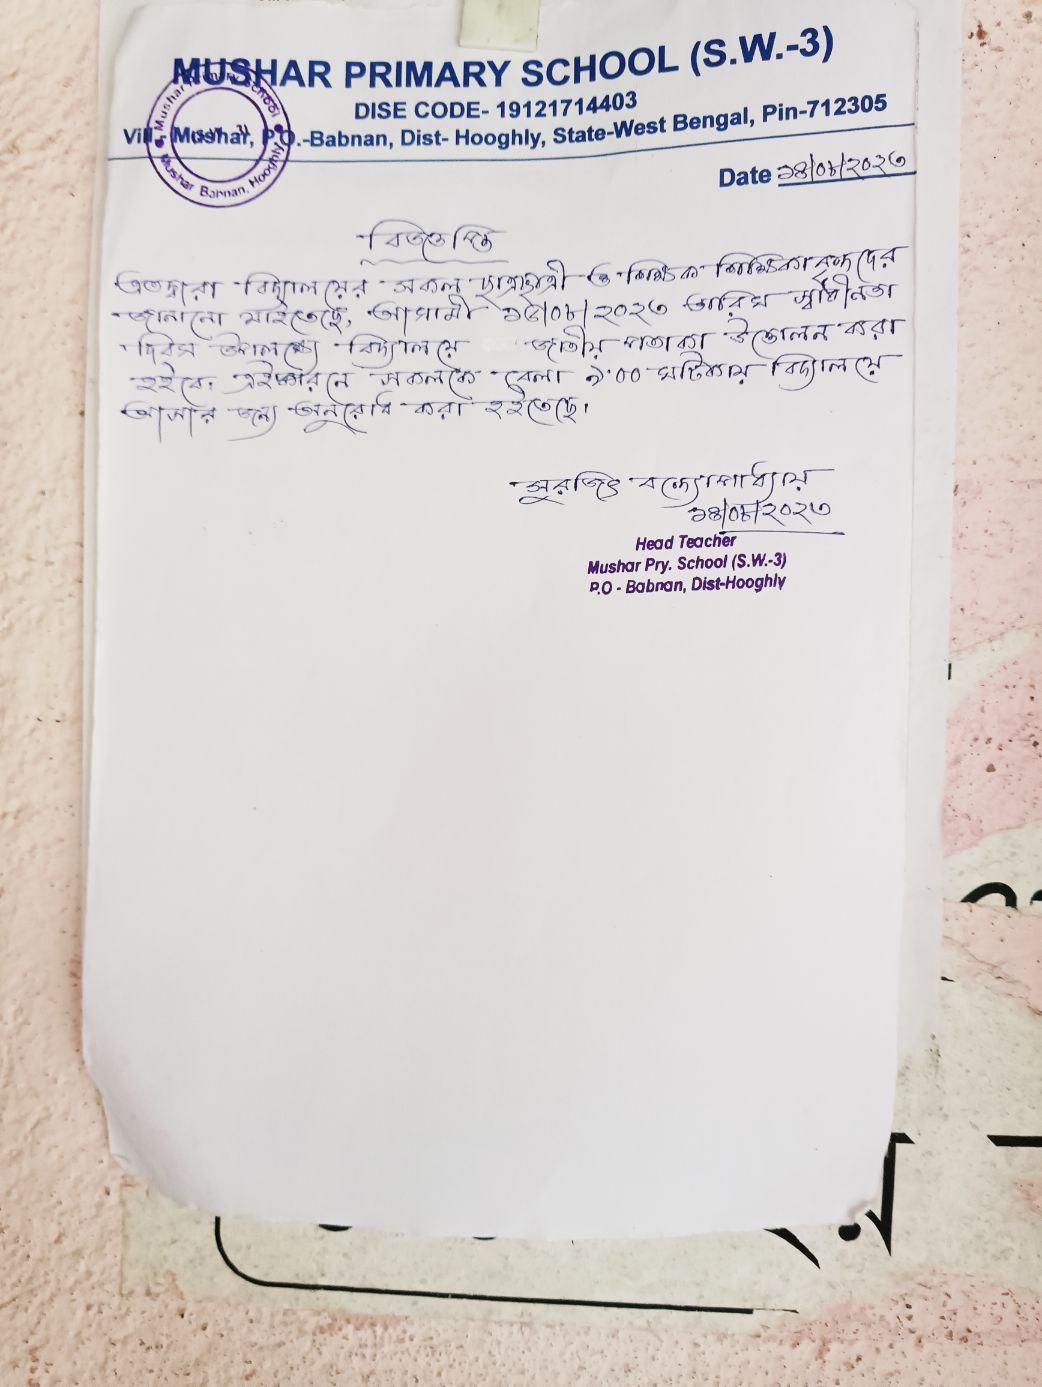 MUSHAR PRIMARY SCHOOL (S.W.-3)
DISE CODE- 19121714403
Vill.- Mushar, P.O.-Babnan, Dist- Hooghly, State-West Bengal, Pin-712305
Mushar Primary School
Mushar Babnan, Hooghly
Date ১৪/০৮/২০২৩
বিজ্ঞপ্তি
এতদ্বারা বিদ্যালয়ের সকল ছাত্রছাত্রী ও শিক্ষক শিক্ষিকাবৃন্দদের
জানানো যাইতেছে, আগামী ১৫/০৮/২০২৩ তারিখ স্বাধীনতা
দিবস উপলক্ষ্যে বিদ্যালয়ে জাতীয় পতাকা উত্তোলন করা
হইবে। এইকারনে সকলকে বেলা ৯:০০ ঘটিকায় বিদ্যালয়ে
আসার জন্যে অনুরোধ করা হইতেছে।
সুরজিৎ বন্দ্যোপাধ্যায়
১৪/০৮/২০২৩
Head Teacher
Mushar Pry. School (S.W.-3)
P.O - Babnan, Dist-Hooghly